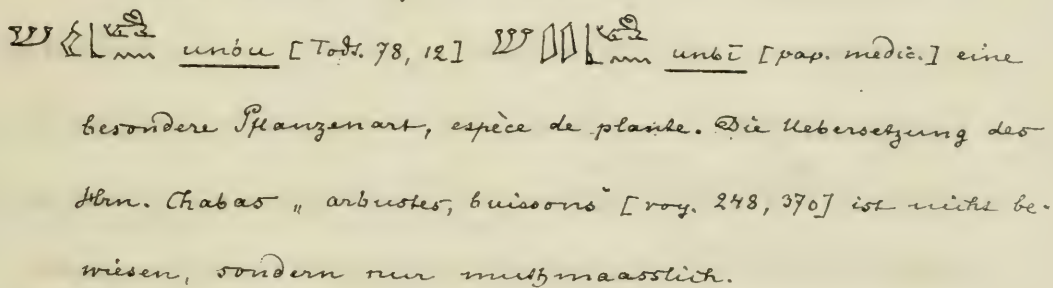 unbu [Todt. 78, 12] unbī [pap. medic.] eine
besondere Pflanzenart, espèce de plante. Die Uebersetzung des
Hrn. Chabas „arbustes, buissons" [voy. 248, 370] ist nicht be-
wiesen, sondern nur muthmaasslich.